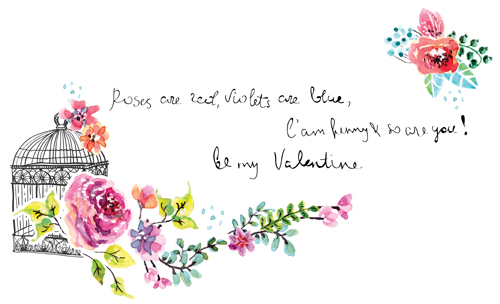 Roses are red, Violets are blue,
I'am funny & so are you!
be my Valentine